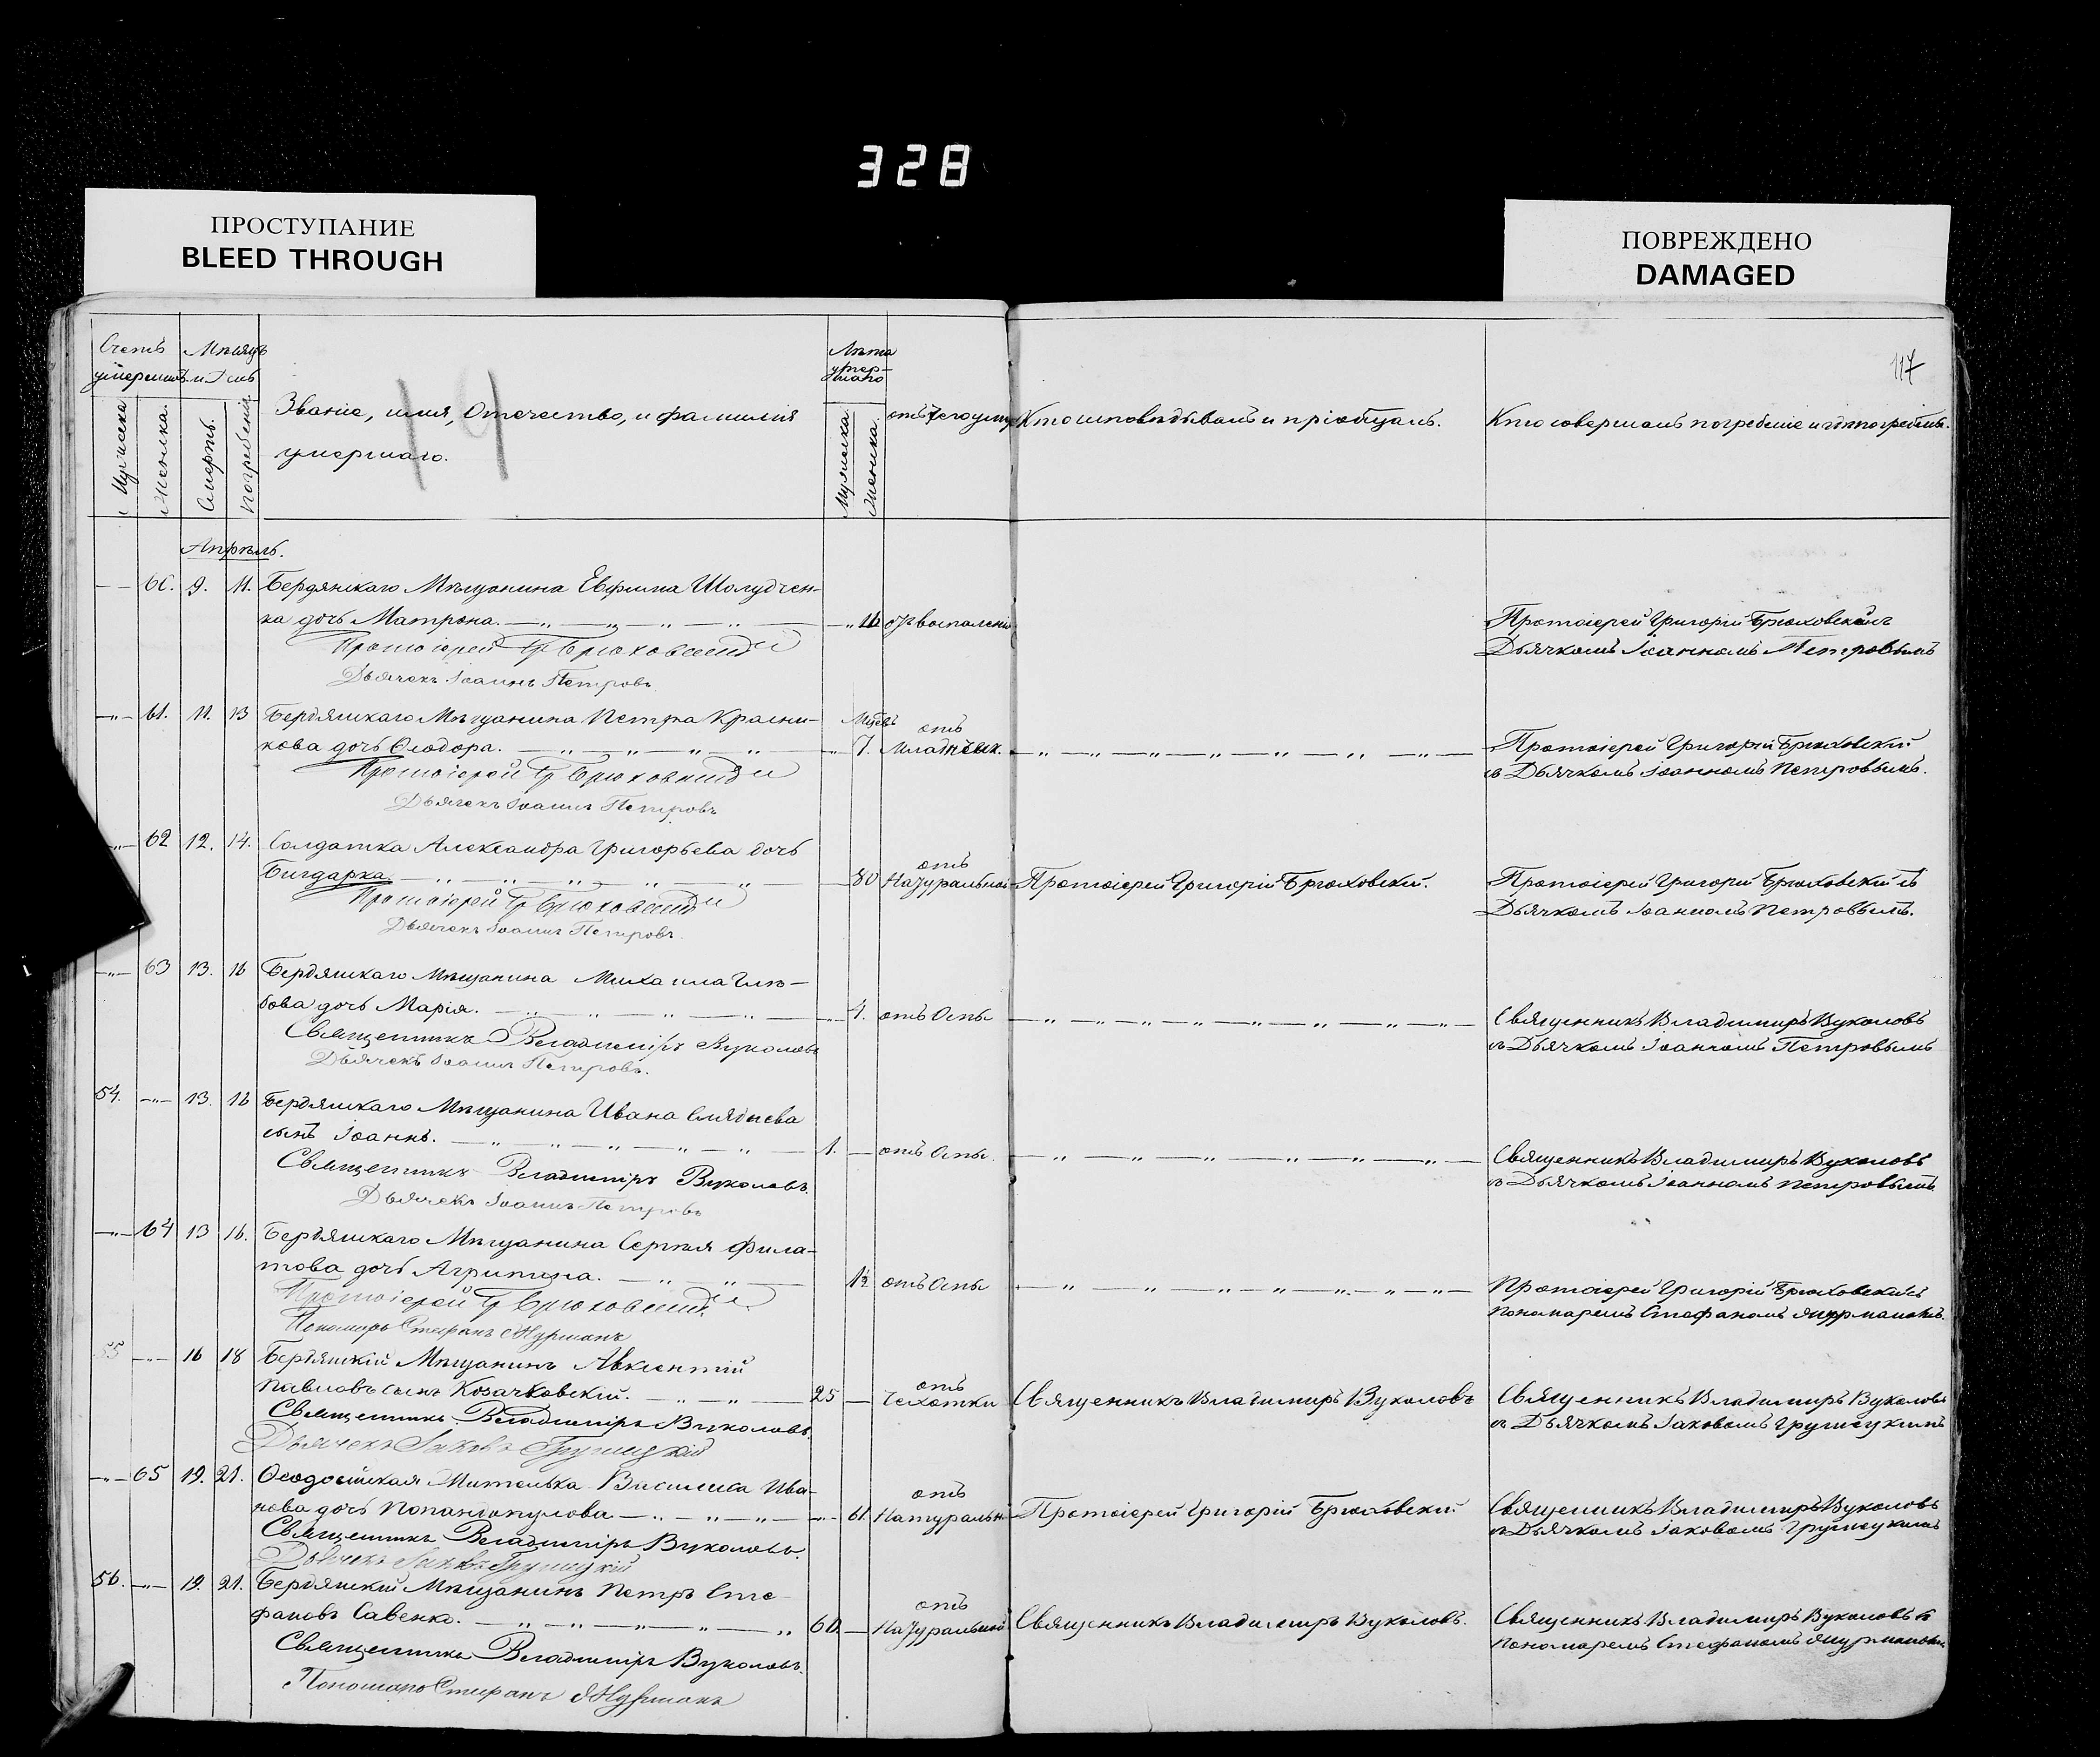 328
ПРОСТУПАНИЕ
BLEED THROUGH
ПОВРЕЖДЕНО
DAMAGED
117
Счетъ умершихъ
Мужеска
Женска.
Мѣсяцъ и день
Смерть.
Погребенія
Званіе, имя, Отечество, и фамилія
умершаго.
Лѣта умер-
шаго
Мужеска
Женска.
отъ чего умеръ
Кто исповѣдывалъ и пріобщалъ.
Кто совершалъ погребеніе и гдѣ погребены.
Апрѣль.
60. 9. 11. Бердянскаго Мѣщанина Евфима Шолудчен-
ка дочь Матрона. отъ воспаленія
Протоіерей Григорій Брюховскій съ
Дьячкомъ Іоанномъ Петровымъ
Протоіерей Гр Брюховскій
Дьячекъ Іоаннъ Петровъ
61. 11. 13 Бердянскаго Мѣщанина Петра Красни-
кова дочь Ѳеодора. 7. отъ Младенческ.
Протоіерей Григорій Брюховскій
съ Дьячкомъ Іоанномъ Петровымъ.
Протоіерей Гр Брюховскій
Дьячекъ Іоаннъ Петровъ
62 12. 14. Солдатка Александра Григорьева дочь
80 отъ Натуральной Протоіерей Григорій Брюховскій.
Протоіерей Григорій Брюховскій съ
Дьячкомъ Іоанномъ Петровымъ.
Протоіерей Гр Брюховскій
Дьячекъ Іоаннъ Петровъ
63 13. 16 Бердянскаго Мѣщанина Михаила Глѣ-
бова дочь Марія. 4. отъ Оспы
Священникъ Владимиръ Вуколовъ
съ Дьячкомъ Іоанномъ Петровымъ
Священникъ Владиміръ Вуколовъ
Дьячекъ Іоаннъ Петровъ.
54. 13. 16 Бердянскаго Мѣщанина Ивана
сынъ Іоаннъ. 1. отъ Оспы.
Священникъ Владимиръ Вуколовъ
съ Дьячкомъ Іоанномъ Петровымъ
Священникъ Владиміръ Вуколовъ.
Дьячекъ Іоаннъ Петровъ
64 13 16. Бердянскаго Мѣщанина Сергѣя Фила-
това дочь Агрипина. отъ Оспы
Протоіерей Григорій Брюховскій съ
Пономаремъ Стефаномъ
Протоіерей Гр Брюховскій.
Пономарь Стефанъ
55 16 18 Бердянскій Мѣщанинъ Авксентій
Павловъ сынъ Козачковскій. 25 отъ Чехотки Священникъ Владимиръ Вуколовъ
Священникъ Владимиръ Вуколовъ
съ Дьячкомъ Іаковомъ Грушецкимъ
Священникъ Владиміръ Вуколовъ.
Дьячекъ Іаковъ Грушецкій
65 19. 21. Ѳеодосійская Жителька Василиса Ива-
нова дочь Попандопулова 61. отъ Натуральн. Протоіерей Григорій Брюховскій
Священникъ Владимиръ Вуколовъ
съ Дьячкомъ Іаковомъ Грушецкимъ
Священникъ Владиміръ Вуколовъ.
Дьячекъ Іаковъ Грушецкій
56. 19. 21. Бердянскій Мѣщанинъ Петръ Сте-
фановъ Савенко. 60. отъ Натуральной Священникъ Владимиръ Вуколовъ.
Священникъ Владимиръ Вуколовъ съ
Пономаремъ Стефаномъ
Священникъ Владиміръ Вуколовъ.
Пономарь Стефанъ